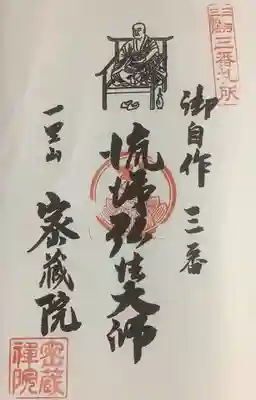 三弘法三番札所
御自作 三番
流涕弘法大師
一里山 密蔵院
密蔵禅院